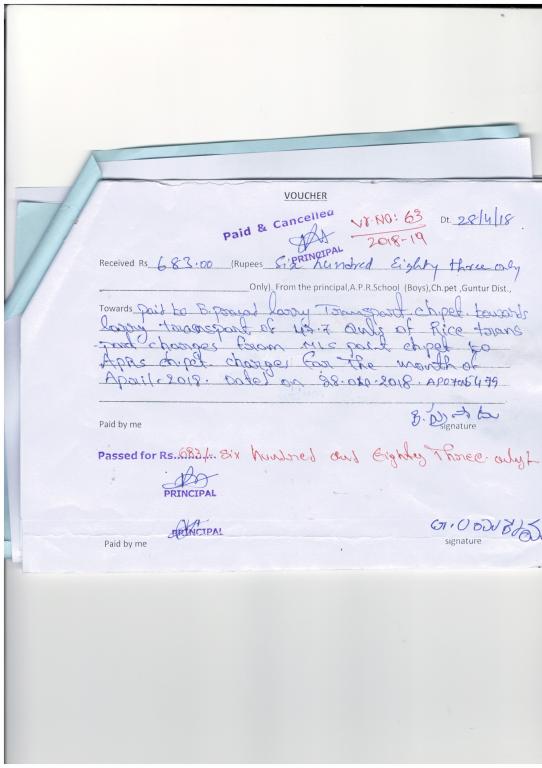 VOUCHER
Paid & Cancelled
Vr NO: 63
2018-19
Dt. 28/4/18
PRINCIPAL
Received Rs 683.00 (Rupees Six hundred Eighty three only
Only). From the principal,A.P.R.School (Boys),Ch.pet ,Guntur Dist.,
Towards paid to lorry Transport chpet. towards
lorry transport of of Rice trans
port charges from MLS point chpet to
APRS ch.pet. charges for the month of
April-2018. Dated on 28-04-2018.
Paid by me
signature
Passed for Rs. 683/- Six hundred and Eighty Three only
PRINCIPAL
PRINCIPAL
Paid by me
signature